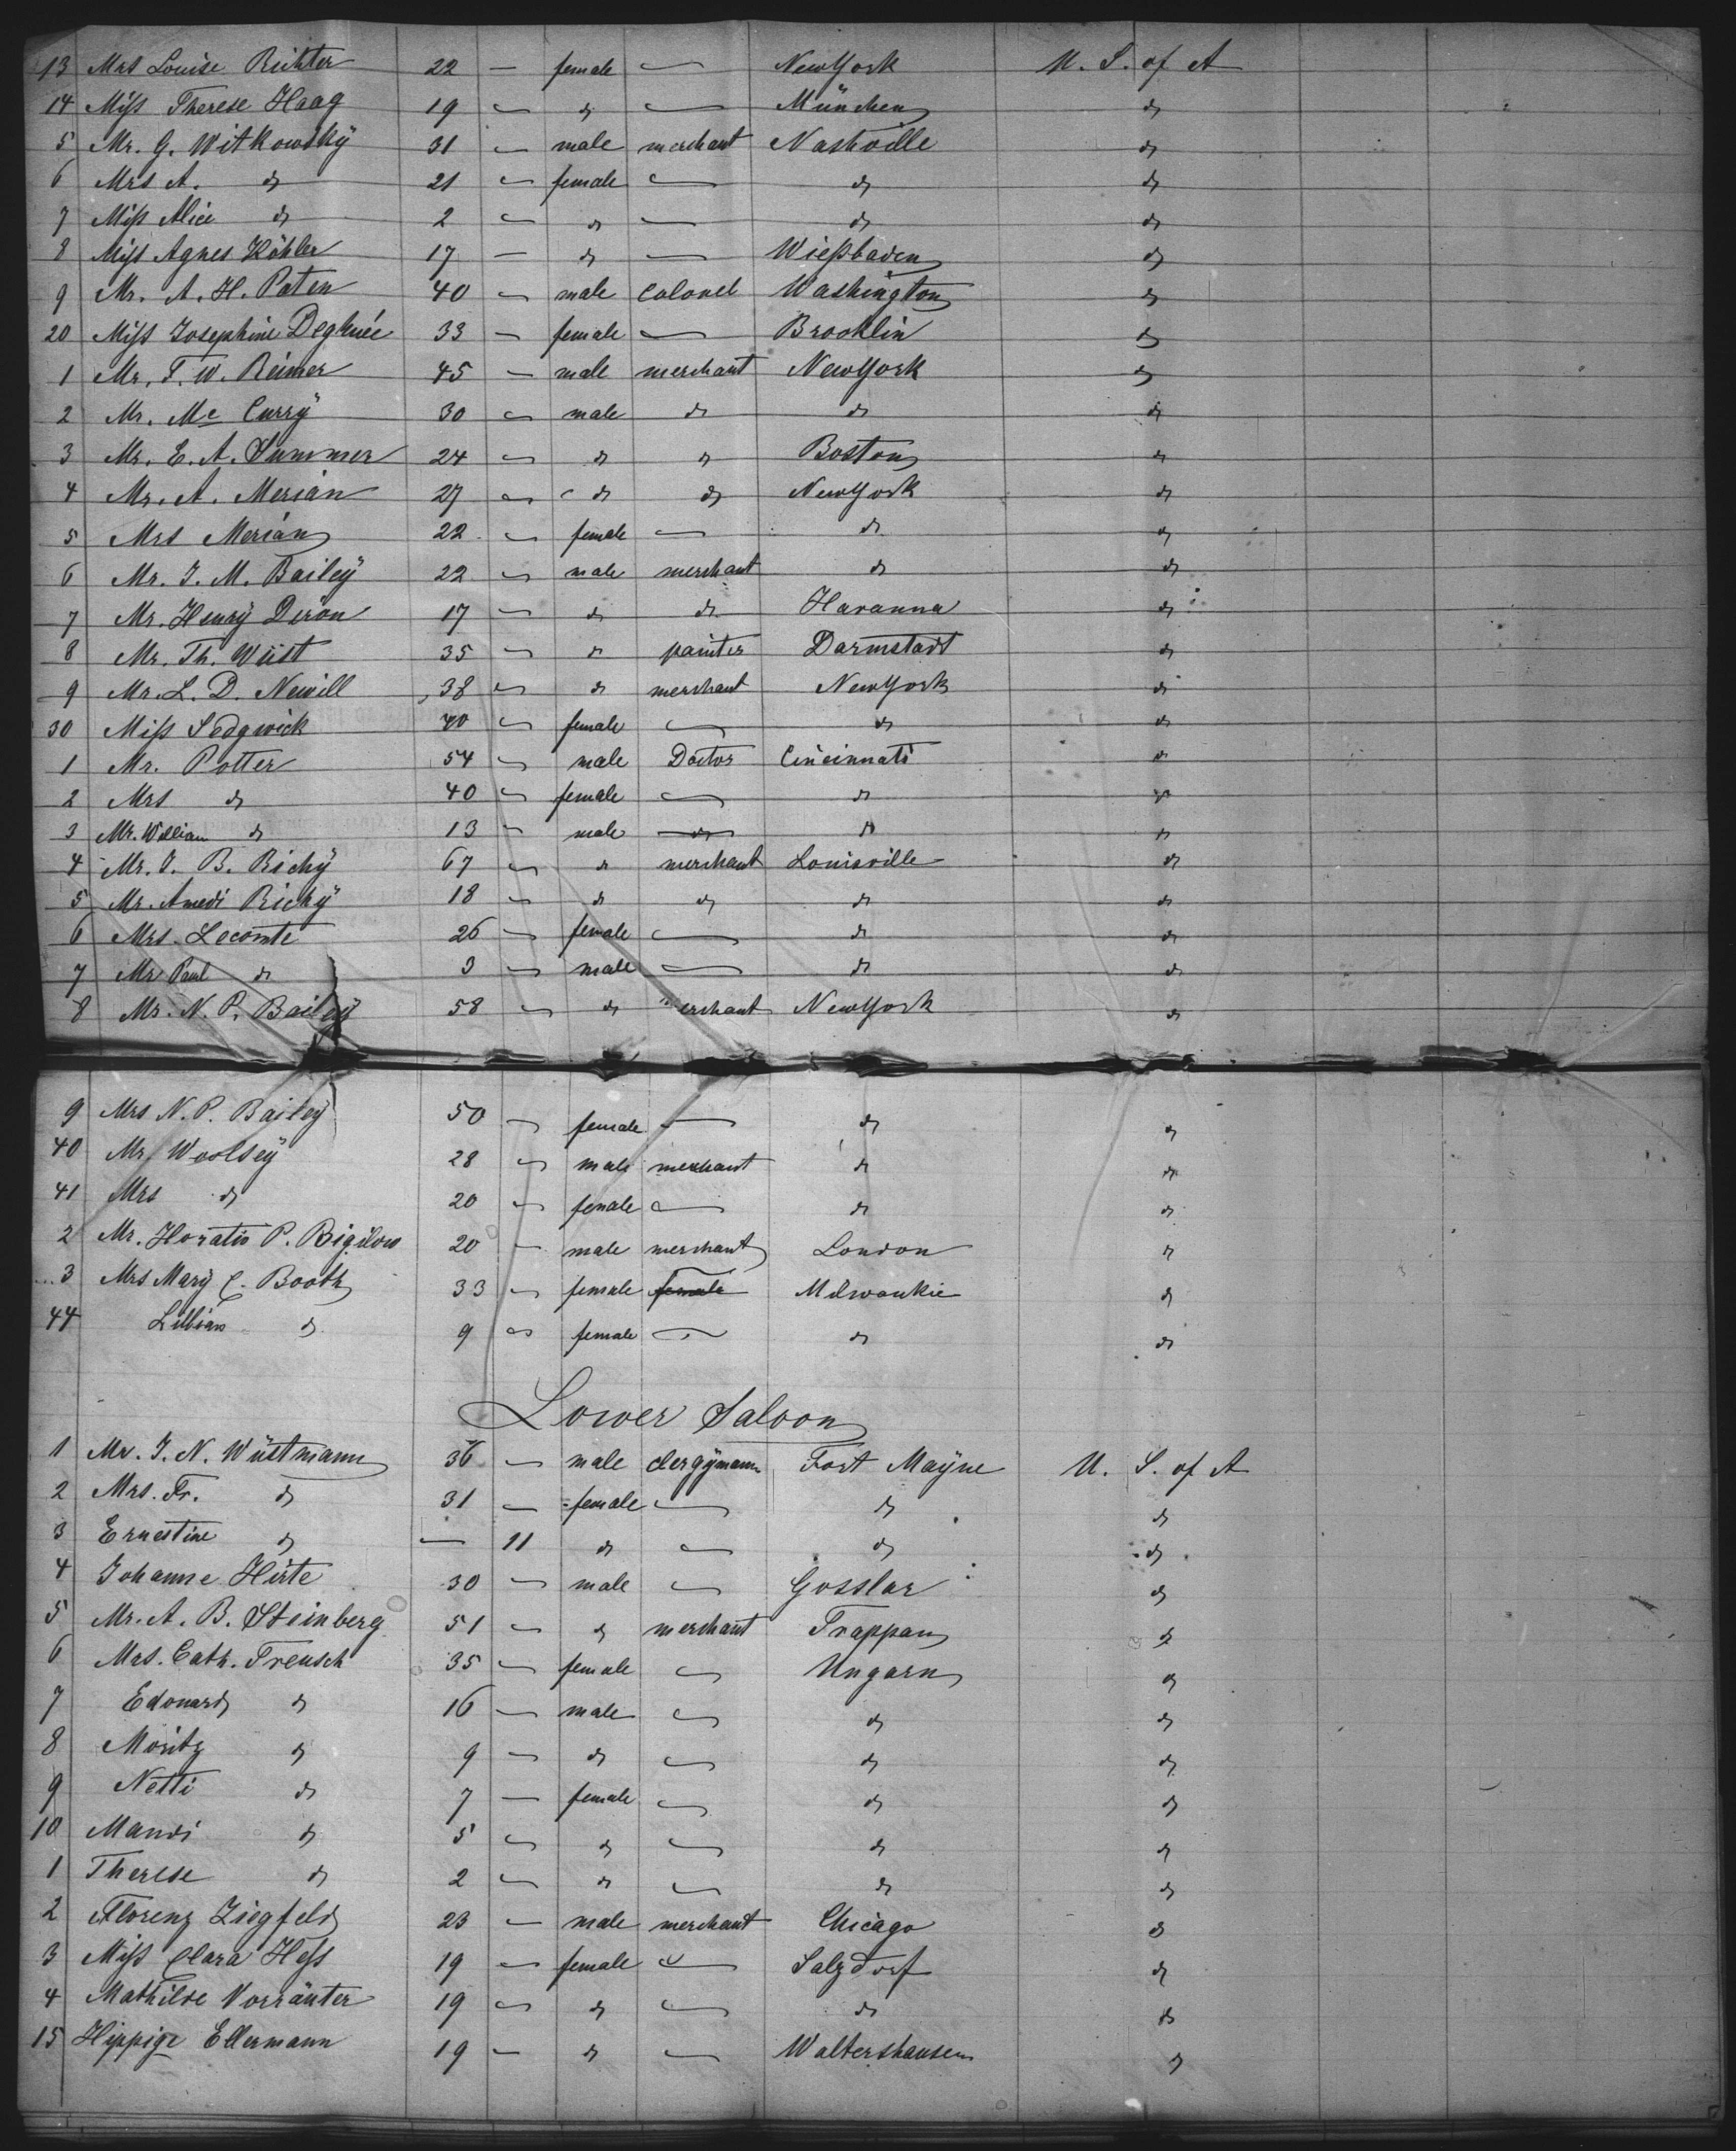 13 Mrs Louise Richter 22 — female — NewYork U. S. of A
14 Miss Therese Haag 19 — do — München do
5 Mr. G. Witkowsky 31 — male merchant Nashville do
6 Mrs A. do 21 — female — do do
7 Miss Alice do 2 — do — do do
8 Miss Agnes Köhler 17 — do — Wiessbaden do
9 Mr. A. H. Paten 40 — male Colonel Washington do
20 Miss Josephine 33 — female — Brooklin do
1 Mr. F. W. Reimer 45 — male merchant NewYork do
2 Mr. Mc Curry 30 — male do do do
3 Mr. E. A. Summer 24 — do do Boston do
4 Mr. A. Merian 27 — do do NewYork do
5 Mrs Merian 22 — female — do do
6 Mr. J. M. Bailey 22 — male merchant do do
7 Mr. Henry Deron 17 — do do Havanna do
8 Mr. Th. Wüst 35 — do painter Darmstadt do
9 Mr. L. D. Newill 38 — do merchant NewYork do
30 Miss Sedgwick 40 — female — do do
1 Mr. Potter 54 — male Doctor Cincinnati do
2 Mrs do 40 — female — do do
3 Mr. William do 13 — male — do do
4 Mr. J. B. Richy 67 — do merchant Louisville do
5 Mr. Amedi Richy 18 — do do do do
6 Mrs. Lecomte 26 — female — do do
7 Mr Paul do 3 — male — do do
8 Mr. N. P. Bailey 58 — do merchant NewYork do
9 Mrs N. P. Bailey 50 — female — do do
40 Mr. Woolsey 28 — male merchant do do
41 Mrs do 20 — female — do do
2 Mr. Horatio P. Bigilow 20 — male merchant London do
3 Mrs Mary C. Booth 33 — female female Milwaukie do
44 Lillian do 9 — female — do do
Lower Saloon
1 Mr. J. N. Wüstmann 36 — male clergymann Fort Mayne U. S. of A
2 Mrs. Fr. do 31 — female — do do
3 Ernestine do — 11 do — do do
4 Johanne Hirte 30 — male — Gosslar do
5 Mr. A. B. Steinberg 51 — do merchant Trappan do
6 Mrs. Cath. Treusch 35 — female — Ungarn do
7 Edouard do 16 — male — do do
8 Moritz do 9 — do — do do
9 Netti do 7 — female — do do
10 Mandi do 5 — do — do do
1 Therese do 2 — do — do do
2 Florenz Ziegfeld 23 — male merchant Chicago do
3 Miss Clara Hess 19 — female — Salzdorf do
4 Mathilde Vorränter 19 — do — do do
15 Ellermann 19 — do — Waltershausen do